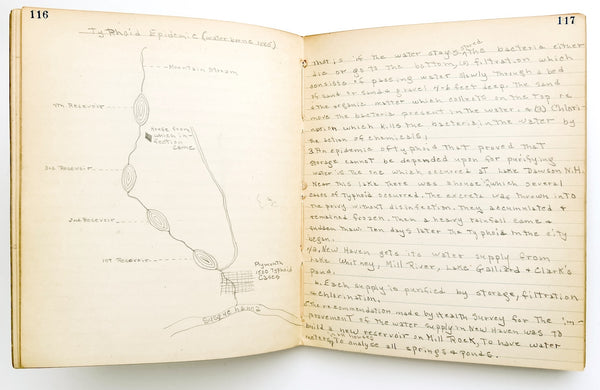 116
Typhoid Epidemic (water borne 1885)
Mountain Stream
4th Resevoir
House from
which in-
fection
came
3rd Resevoir
2nd Resevoir
1st Resevoir
Plymouth
1500 Typhoid
Cases
Susquehanna
117
that is if the water stays stored the bacteria either
die or go to the bottom, (2) filtration which
consists of passing water slowly through a bed
of sand or sand & gravel 4-6 feet deep. The sand
& the organic matter which collects on the top re
move the bacteria present in the water. & (3) Chlori-
nation which kills the bacteria in the water by
the action of chemicals;
3. An epidemic of typhoid that proved that
storage cannot be depended upon for purifying
water is the one which occured at Lake Dawson N.H.
Near this lake there was a house in which several
cases of typhoid occured. The excreta was thrown into
the privy without disinfection. They accumulated &
remained frozen. Then a heavy rainfall came &
sudden thaw. Ten days later the typhoid in the city
began.
4. a. New Haven gets its water supply from
Lake Whitney, Mill River, Lake Galliard & Clark's
pond.
b. Each supply is purified by storage, filtration
& chlorination.
The recommendation made by Health Survey for the im-
provement of the water supply in New Haven was to
build a new reservoir on Mill Rock, To have water
meters in houses to analyse all springs & ponds.